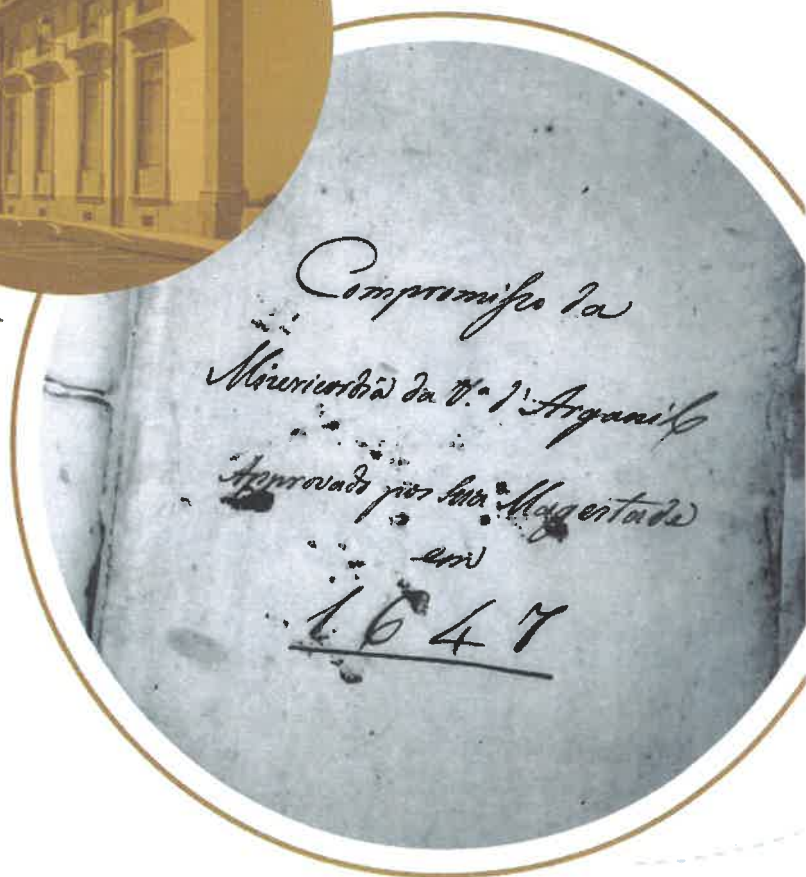 Compromiſso da
Misericordia da V.ª d'Arganil
Approvado por Sua Magestade
em
1647